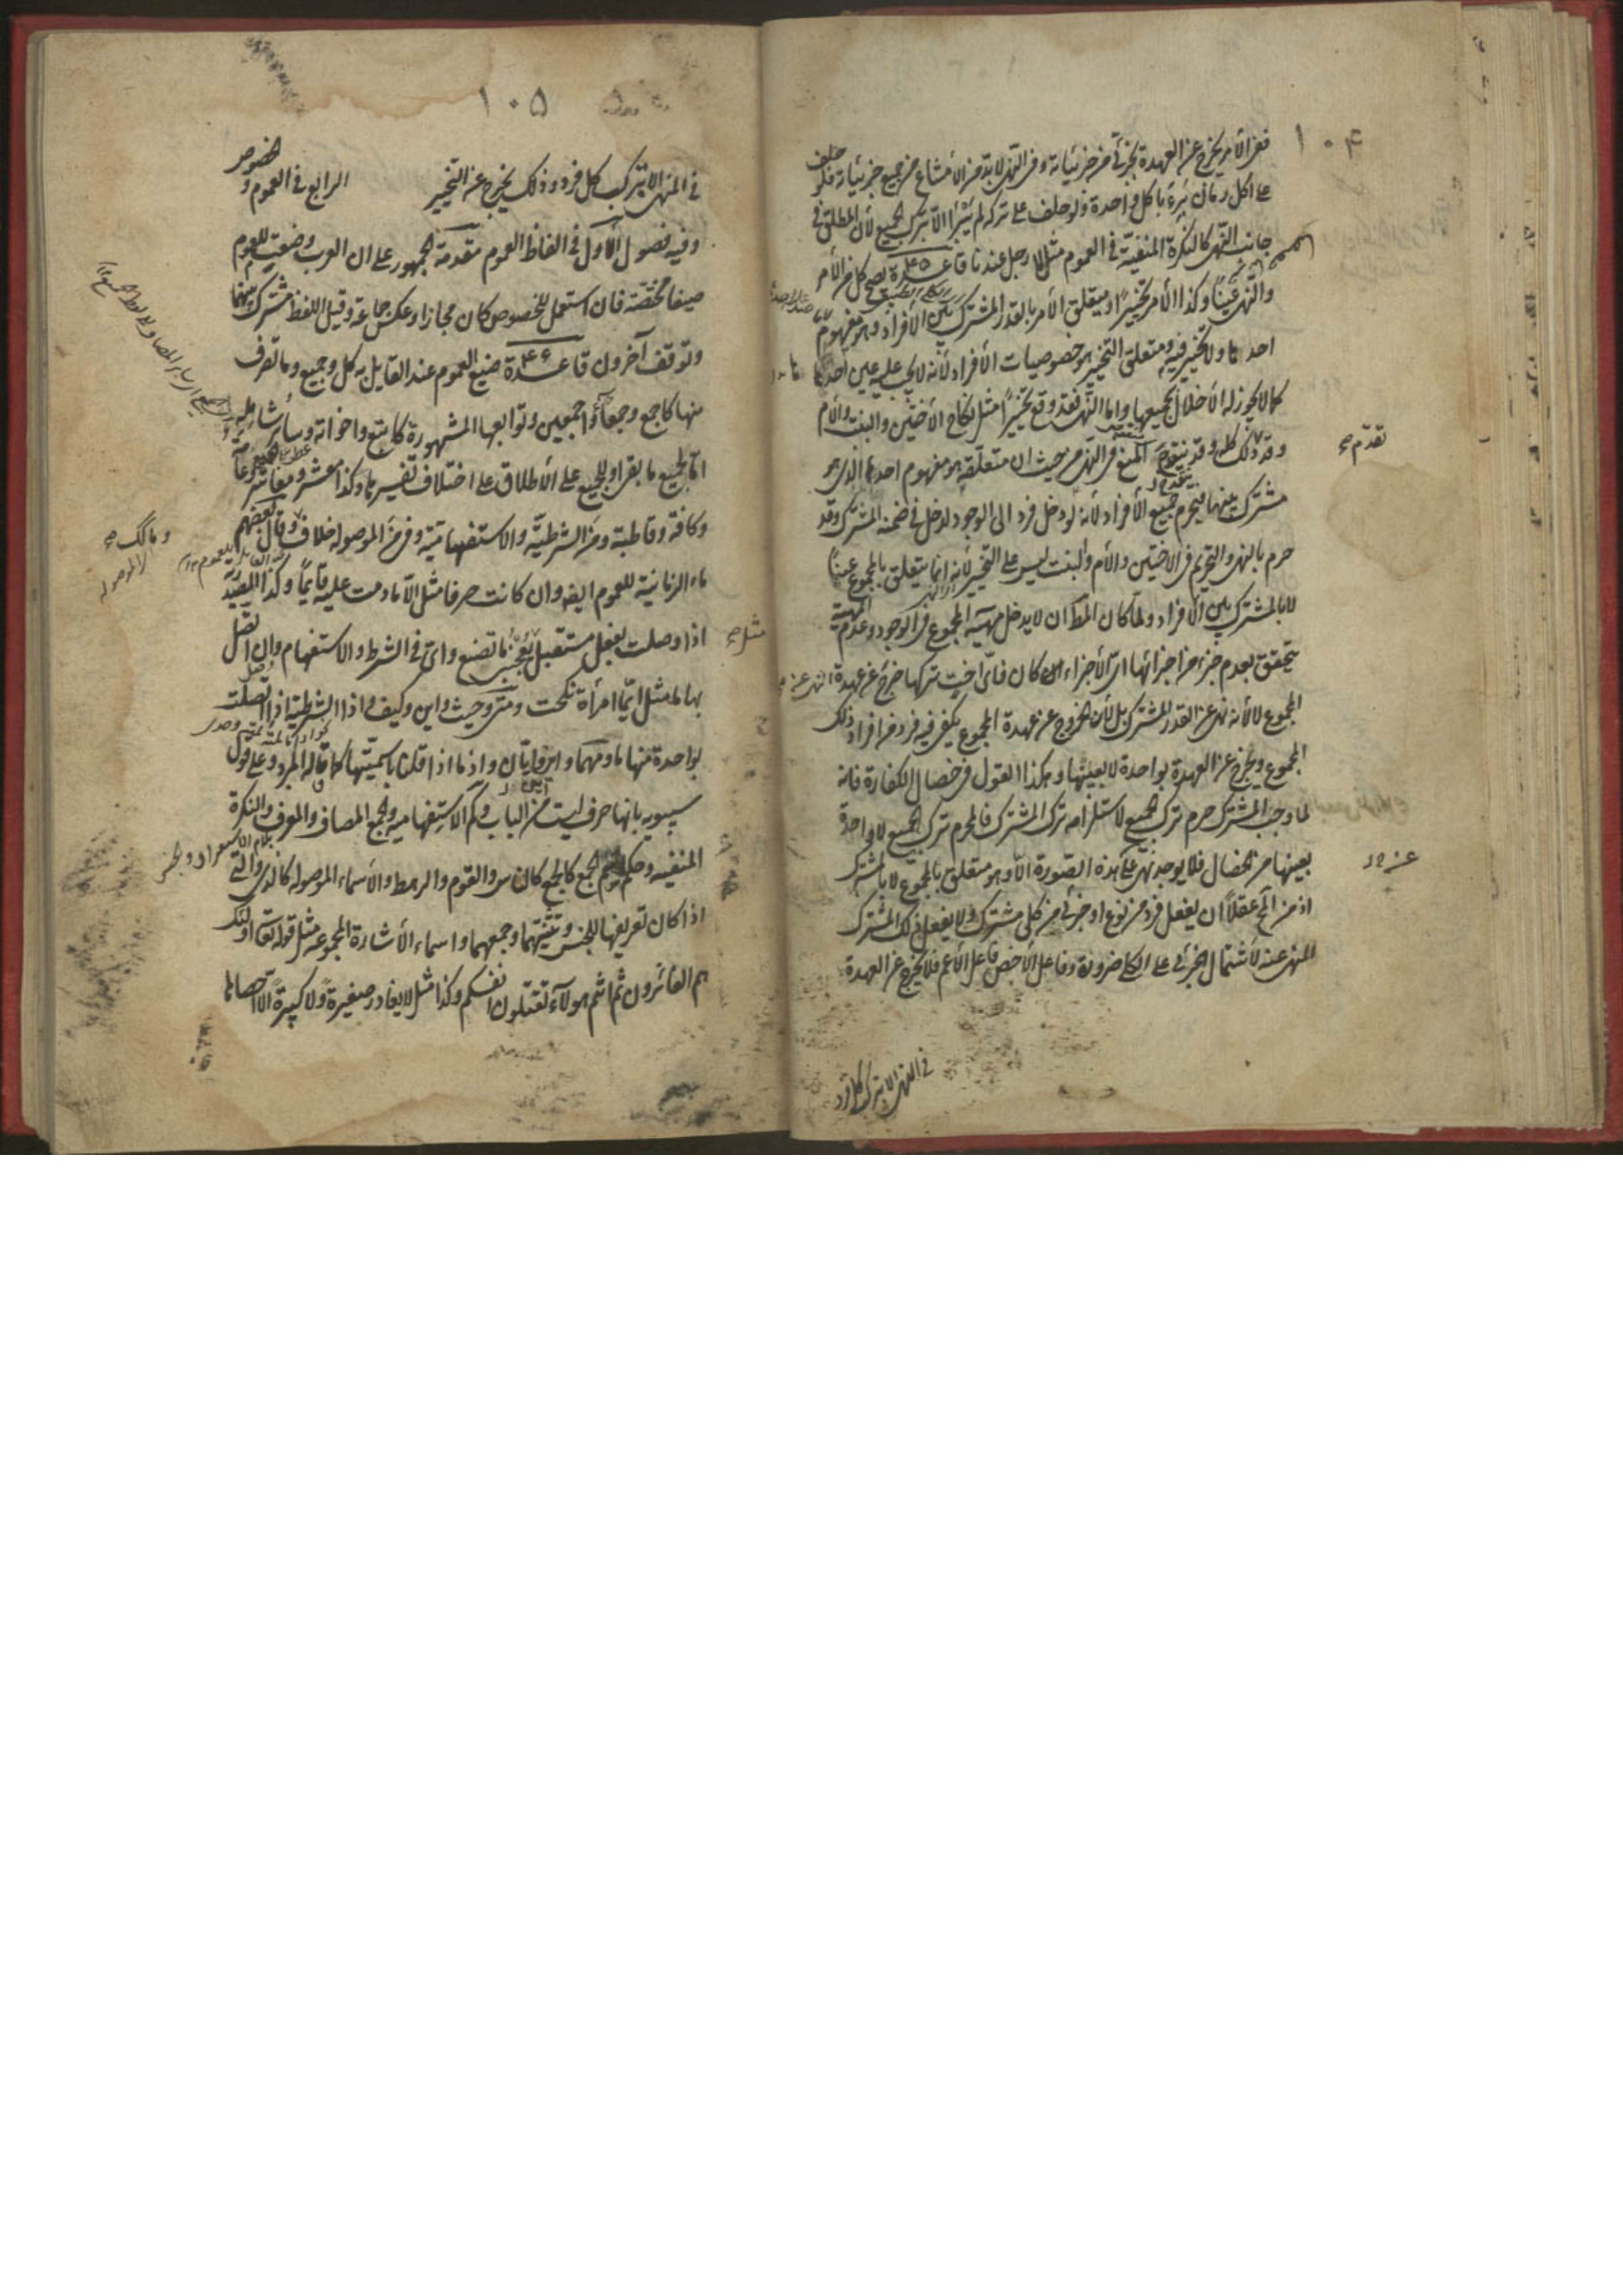 ١٠۴
ففي الأمر يخرج عن العهدة بجزئي من جزئياته وفي النهي لابد من الامتناع من جميع جزئياته فلو حلف
على أكل رمان برئ بأكل واحدة ولو حلف على تركه لم يبرأ الا بترك الجميع لأن المطلق في
جانب النهي كالنكرة المنفية في العموم مثل لا رجل عندنا قاعدة ۴۵ يصح كل من الأمر
والنهي عينًا وكذا الأمر تخييرًا ويتعلق الأمر بالقدر المشترك بين الأفراد وهو مفهوم
احدها ولا تخيير فيه ومتعلق التخيير هو خصوصيات الأفراد لأنه لا يجب عليه عين احدها
كما لا يجوز له الأخلال بجميعها واما النهي فقد وقع تخييرًا مثل نكاح الأختين والبنت والأم
وقد ذلك كله وقد المنع في النهي من حيث ان متعلقه هو مفهوم احدها الذي هو
تقدم صح
مشترك بينها فيحرم جميع الأفراد لأنه لو دخل فرد الى الوجود لدخل في ضمنه المشترك وقد
حرم بالنهي والتحريم في الاختين والأم والبنت ليس على التخيير لأنه انما يتعلق بالمجموع عينًا
لا بالمشترك بين الأفراد ولما كان المط ان لا يدخل مهية المجموع في الوجود وعدم المهية
يتحقق بعدم جزء من اجزائها اي الأجزاء كان فاي اخت تركها خرج عن عهدة النهي عن
المجموع لا لأنه نهي عن القدر المشترك بل لأن الخروج عن عهدة المجموع يكفي فيه فرد من افراد ذلك
المجموع ويخرج عن العهدة بواحدة لا بعينها وهكذا القول في خصال الكفارة فانه
لما وجب المشترك حرم ترك الجميع لاستلزامه ترك المشترك فالمحرم ترك الجميع لا واحدة
بعينها من الخصال فلا يوجد نهي على هذه الصورة الا وهو متعلق بالمجموع لا بالمشترك
اذ من المح عقلًا ان يفعل فرد من نوع او جزئي من كلي مشترك ولا يفعل ذلك المشترك
المنهي عنه لاشتمال الجزئي على الكلي ضرورة وفاعل الأخص فاعل الأعم فلا يخرج عن العهدة
في النهي الا بترك كل فرد
١٠۵
في النهي الا بترك كل فرد وذلك يخرج عن التخيير الرابع في العموم والخصوص
وفيه فصول الأول في الفاظ العموم مقدمة الجمهور على ان العرب وضعت للعموم
صيغا مختصة فان استعمل للخصوص كان مجازا وعكس جماعة وقيل اللفظ مشترك بينهما
وتوقف آخرون قاعدة ۴۶ صيغ العموم عند القائل به كل وجميع وما تصرف
منها كاجمع وجمعاء واجمعين وتوابعها المشهورة كاكتع واخواته وسائر شاملة
اما لجميع ما بقي او للجميع على الأطلاق على اختلاف تفسيرها وكذا معشر ومعاشر وعامة
وكافة وقاطبة ومن الشرطية والاستفهامية وفي الموصولة خلاف وقال بعضهم
ما الزمانية للعموم ايضا وان كانت حرفا مثل الا ما دمت عليه قائمًا وكذا المصدرية
اذا وصلت بفعل مستقبل مثل يعجبني ما تصنع واي في الشرط والاستفهام وان اتصل
بها ما مثل ايما امرأة نكحت ومتى وحيث واين وكيف واذا الشرطية اذا اتصلت
بواحدة منها ما ومهما واني وايان واذما اذا قلنا باسميتها كما قاله المبرد وعلى قول
سيبويه بانها حرف ليست من الباب وكم الاستفهامية والجمع المضاف والمعرف والنكرة
المنفية وحكم اسم الجمع كالجمع كالناس والقوم والرهط والأسماء الموصولة كالذي والتي
اذا كان تعريفها للجنس وتثنيتهما وجمعهما واسماء الأشارة المجموعة مثل قوله تعا اولئك
هم الفائزون ثم انتم هؤلآء تقتلون انفسكم وكذا مثل لا يغادر صغيرةً ولا كبيرةً الا احصاها